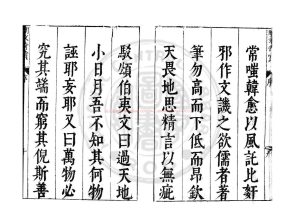 常嗤韓愈以風託比軒
邪作文譏之欲儒者著
筆勿高而下低而昂欽
天畏地思精言以無疵
駁頌伯夷文曰過天地
小日月吾不知其何物
誣耶妄耶又曰萬物必
究其端而窮其倪斯善